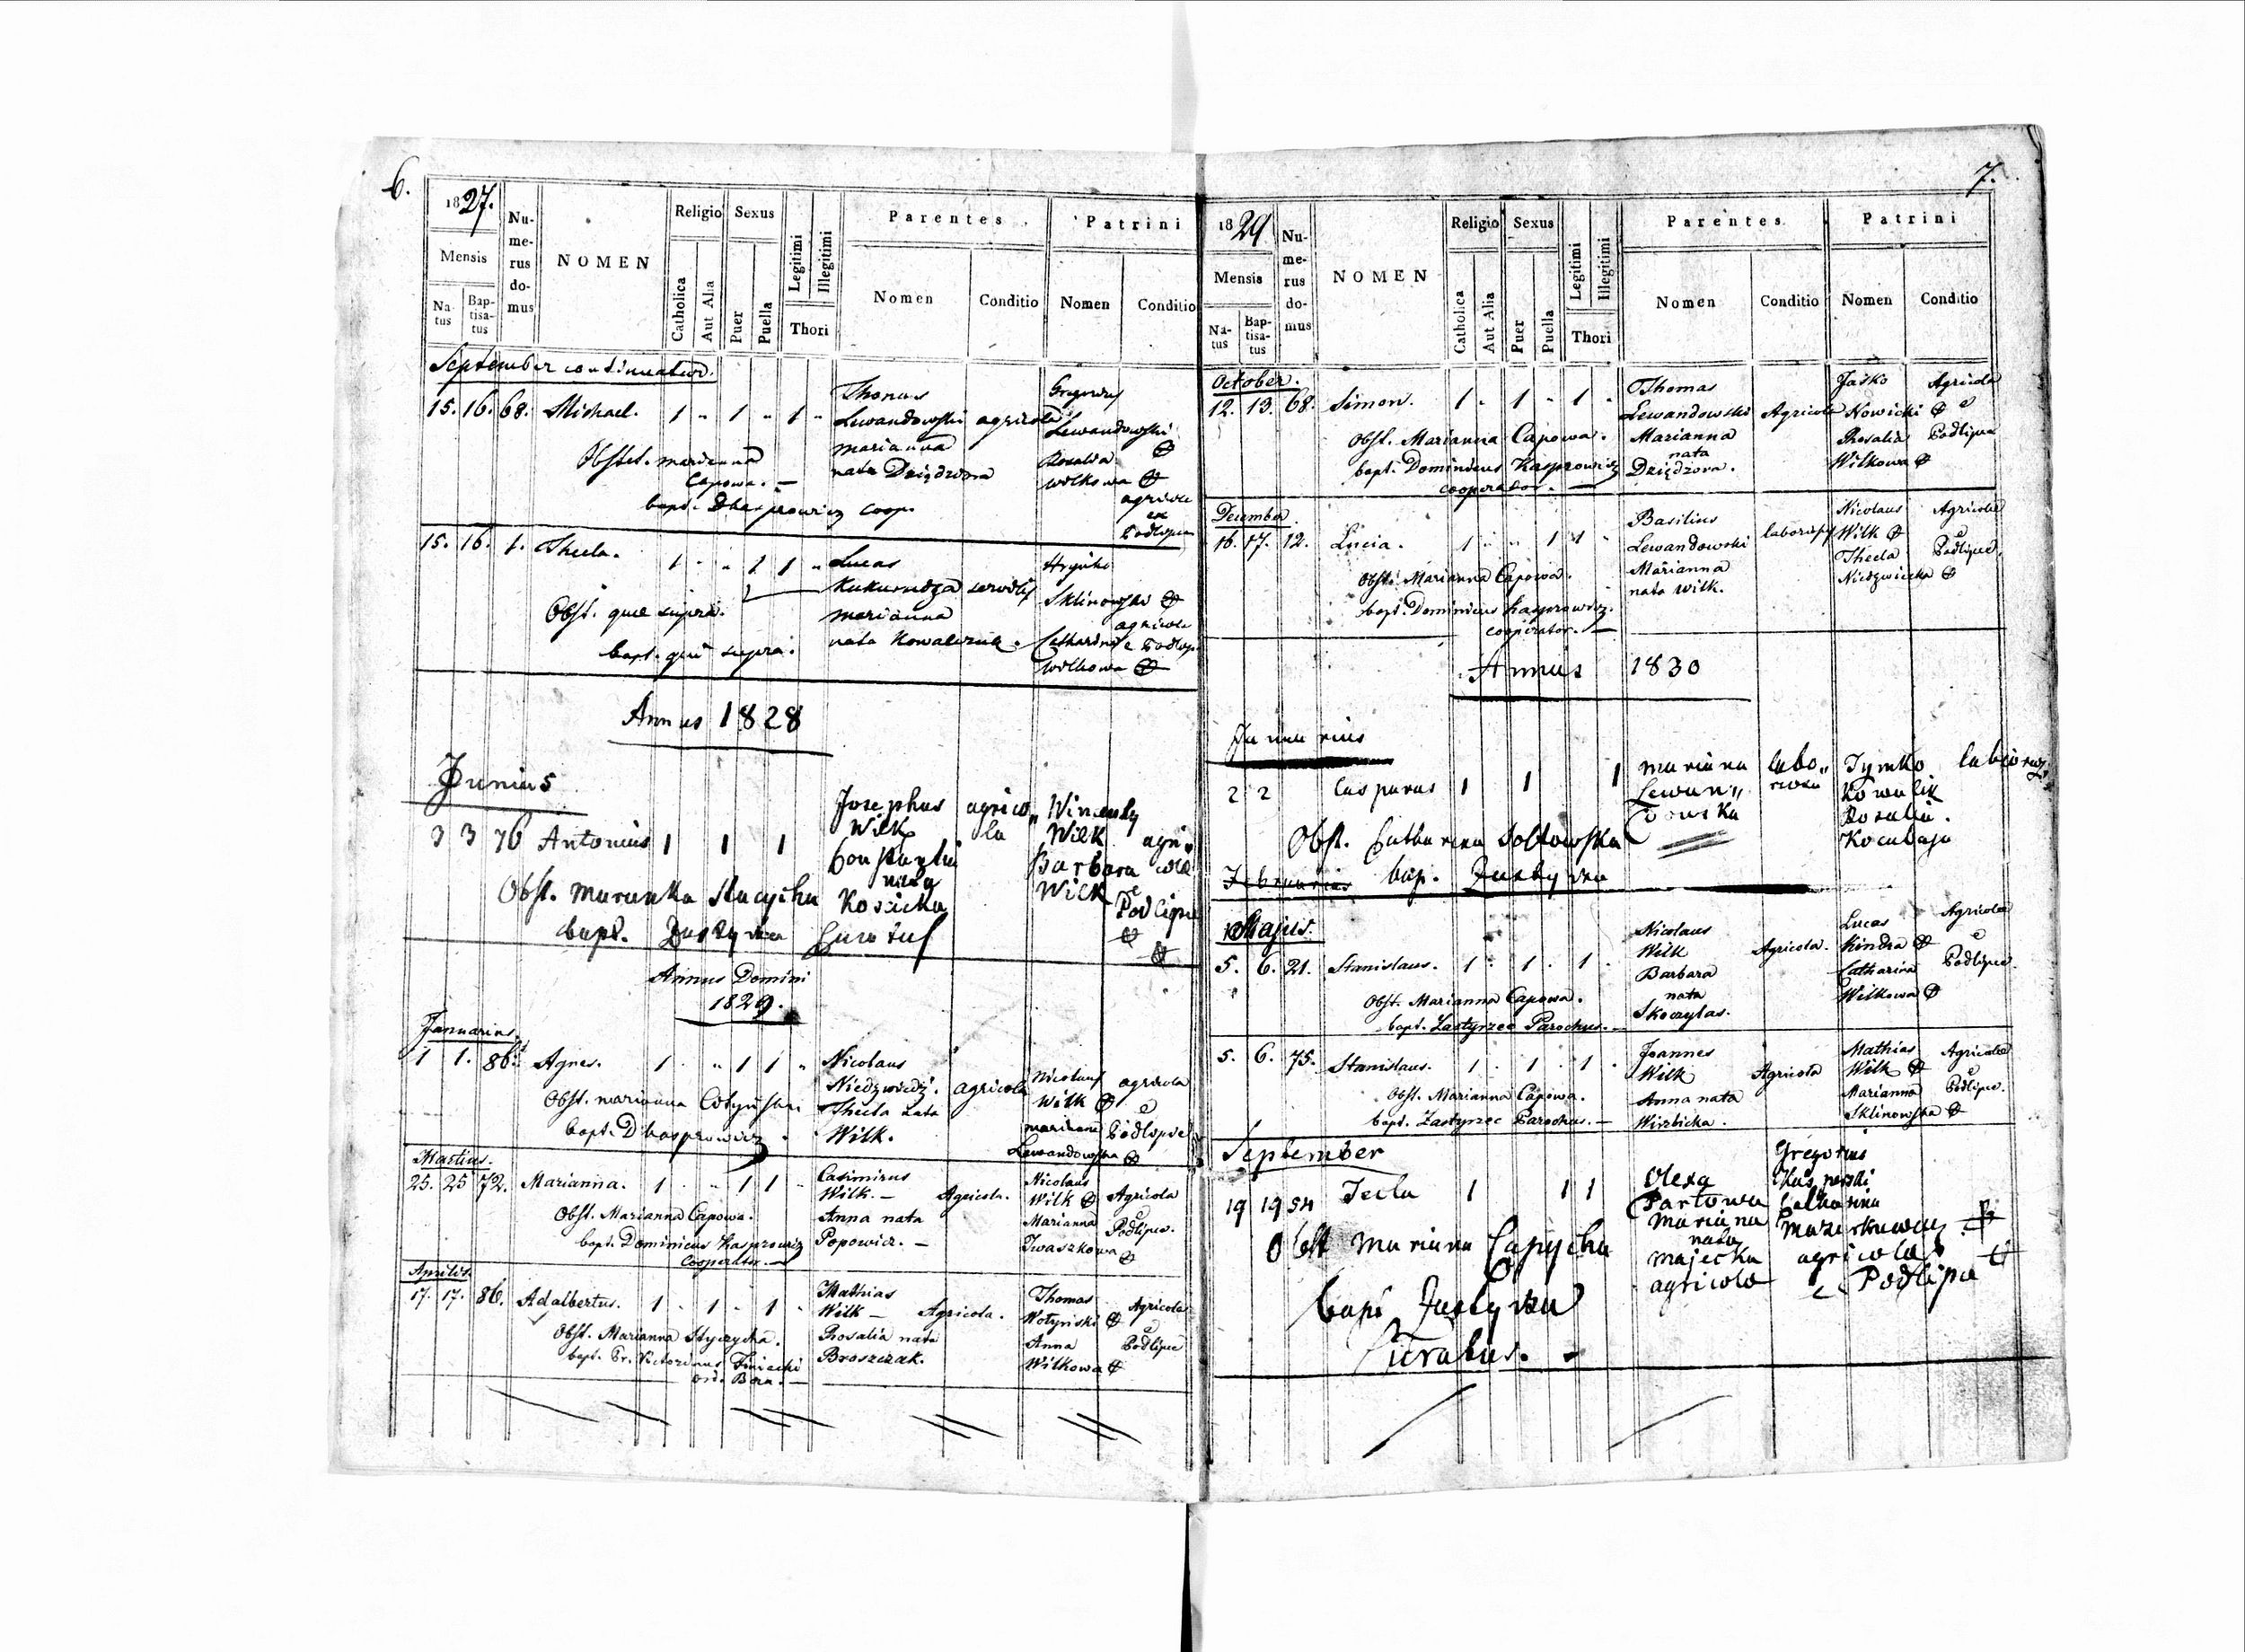 6.
1827.
Numerus domus
NOMEN
Religio
Sexus
Legitimi
Illegitimi
Parentes
Patrini
Mensis
Natus
Baptisatus
Catholica
Aut Alia
Puer
Puella
Thori
Nomen
Conditio
Nomen
Conditio
September continuatur.
15. 16. 68. Michael. 1 " 1 " 1 "
Thomas
Lewandowski agricola
Marianna
nata Dziędziora
Lewandowski
Rosalia
Wilkowa
agricolae
ex
Podlipce
Obstet. Marianna
Capowa. —
bapt. coop.
15. 16. 1. Thecla. 1 " " 1 1 "
Lucas
Kukurudza
Marianna
nata Kowalczuk.
Hryńko
Sklinowski
agricolae
Catharina e Podlip
Wilkowa
Obst. que supra.
bapt. qui supra.
Annus 1828
Junius
3 3 76 Antonius 1 1 1
Josephus agrico„
Wilk la
Kosicka
Wilk agri„
Barbara colae
Wilk e
Podlipce
Obst.
bapt.
Annus Domini
1829.
Januarius.
1 1. 86. Agnes. 1 " 1 1 "
Nicolaus
Niedzwiedź. agricola
Thecla nata
Wilk.
Nicolaus agricola
Wilk e
Podlipce
Lewandowska
Obst. Marianna
bapt. D Kasprowicz.
Martius.
25. 25 72. Marianna. 1 " 1 1
Casimirus
Wilk. — Agricola.
Anna nata
Popowicz. —
Nicolaus
Wilk Agricola
Marianna e Podlipce.
Iwaszkowa
Obst. Marianna Capowa.
bapt. Dominicus Kasprowicz
Cooperator. —
Aprilis.
17. 17. 86. Adalbertus. 1 . 1 . 1 .
Mathias
Wilk — Agricola.
Rosalia nata
Broszczak.
Thomas
Wołyński Agricola
Anna e Podlipce
Wilkowa
Obst. Marianna Styczycha.
bapt. Fr. Victorinus
ord. Bern. —
7.
1829
Numerus domus
NOMEN
Religio
Sexus
Legitimi
Illegitimi
Parentes
Patrini
Mensis
Natus
Baptisatus
Catholica
Aut Alia
Puer
Puella
Thori
Nomen
Conditio
Nomen
Conditio
October.
12. 13. 68. Simon. 1 . 1 . 1 .
Thomas
Lewandowski Agricola
Marianna
nata
Dziędziora.
Jaśko Agricolae
Nowicki e
Rosalia Podlipce
Wilkowa
Obst. Marianna Capowa.
bapt. Dominicus Kasprowicz
cooperator. —
December.
16. 17. 12. Lucia. 1 . " 1 1 .
Basilius
Lewandowski
Marianna
nata Wilk.
Nicolaus Agricolae
Wilk e
Thecla Podlipce.
Niedzwiecka
Obst. Marianna Capowa.
bapt. Dominicus Kasprowicz.
cooperator. —
Annus 1830
Januarius
2 2 Casparus 1 1 1
Mariana labo„
Lewan„
dowska
Tymko
Kowalik
Rosalia.
Obst. Catharina Sołtowska
Februarius bap.
Majus.
5. 6. 21. Stanislaus. 1 . 1 . 1 .
Nicolaus
Wilk Agricola.
Barbara
nata
Skoczylas.
Lucas Agricolae
Kindra e
Catharina Podlipce.
Wilkowa
Obst. Marianna Capowa.
bapt. Zastyrzec Parochus. —
5. 6. 75. Stanislaus. 1 . 1 . 1 .
Joannes
Wilk Agricola
Anna nata
Wirzbicka.
Mathias Agricolae
Wilk e
Marianna Podlipce.
Sklinowska
Obst. Marianna Capowa.
bapt. Zastyrzec Parochus. —
September
19 19 54 Tecla 1 1 1
Olexa
Mariana
nata
Majecka
agricola
Gregorius
Catharina
agricolae
e Podlipce
Obst Mariana Capycha
bapt
Curatus.